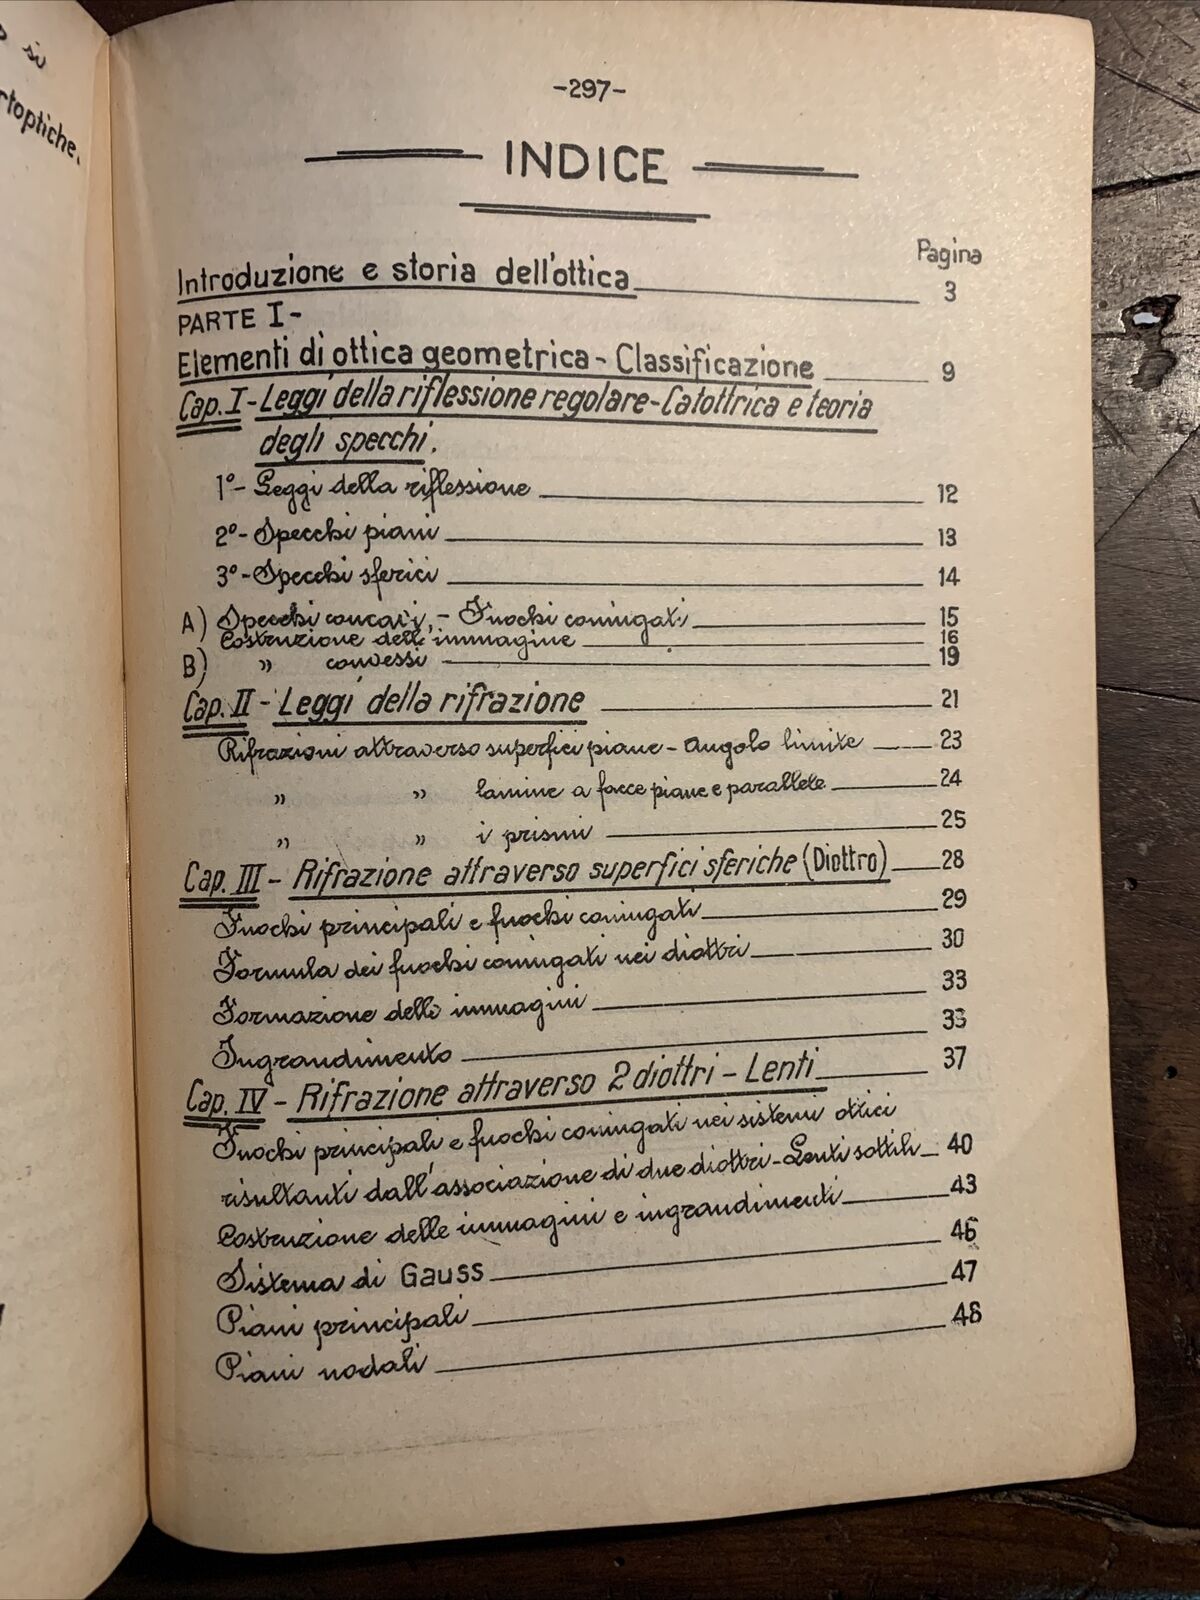 si
rtoptiche.
-297-
INDICE
Pagina
Introduzione e storia dell'ottica 3
PARTE I-
Elementi di ottica geometrica - Classificazione 9
Cap. I - Leggi della riflessione regolare - Catottrica e teoria
degli specchi.
1°- Leggi della riflessione 12
2°- Specchi piani 13
3°- Specchi sferici 14
A) Specchi concavi, - Fuochi coniugati 15
Costruzione dell'immagine 16
B) " convessi 19
Cap. II - Leggi della rifrazione 21
Rifrazioni attraverso superfici piane - Angolo limite 23
" " lamine a facce piane e parallele 24
" " i prismi 25
Cap. III - Rifrazione attraverso superfici sferiche (Diottro) 28
Fuochi principali e fuochi coniugati 29
Formula dei fuochi coniugati nei diottri 30
Formazione delle immagini 33
Ingrandimento 35
Cap. IV - Rifrazione attraverso 2 diottri - Lenti 37
Fuochi principali e fuochi coniugati nei sistemi ottici
risultanti dall'associazione di due diottri - Lenti sottili 40
Costruzione delle immagini e ingrandimenti 43
Sistema di Gauss 46
Piani principali 47
Piani nodali 48